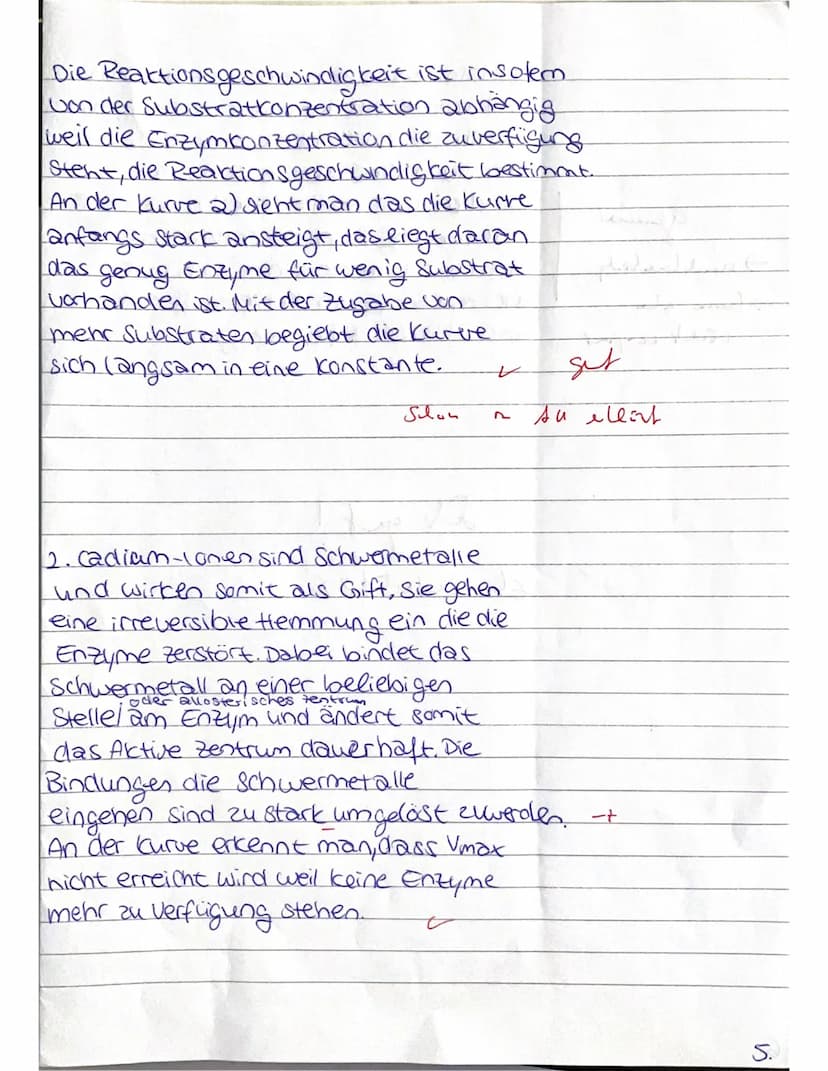 Die Reaktionsgeschwindigkeit ist insofern
von der Substratkonzentration abhängig
weil die Enzymkonzentration die zuverfügung
steht, die Reaktionsgeschwindigkeit bestimmt.
An der Kurve a) sieht man das die Kurve
anfangs stark ansteigt, das liegt daran
das genug Enzyme für wenig Substrat
vorhanden ist. Mit der Zugabe von
mehr Substraten begiebt die Kurve
sich langsam in eine Konstante. ✓ gut
2. Cadium-Ionen sind Schwermetalle
und wirken somit als Gift, Sie gehen
eine irreversible Hemmung ein die die
Enzyme zerstört. Dabei bindet das
Schwermetall an einer beliebigen
oder allosterisches Zentrum
Stelle/am Enzym und ändert somit
das Aktive Zentrum dauerhaft. Die
Bindungen die Schwermetalle
eingehen sind zu stark umgelöst zuwerden.
An der Kurve erkennt man, dass Vmax
nicht erreicht wird weil keine Enzyme
mehr zu Verfügung stehen. ✓
5.